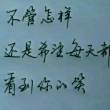 不管怎样
还是希望每天都
看到你的笑